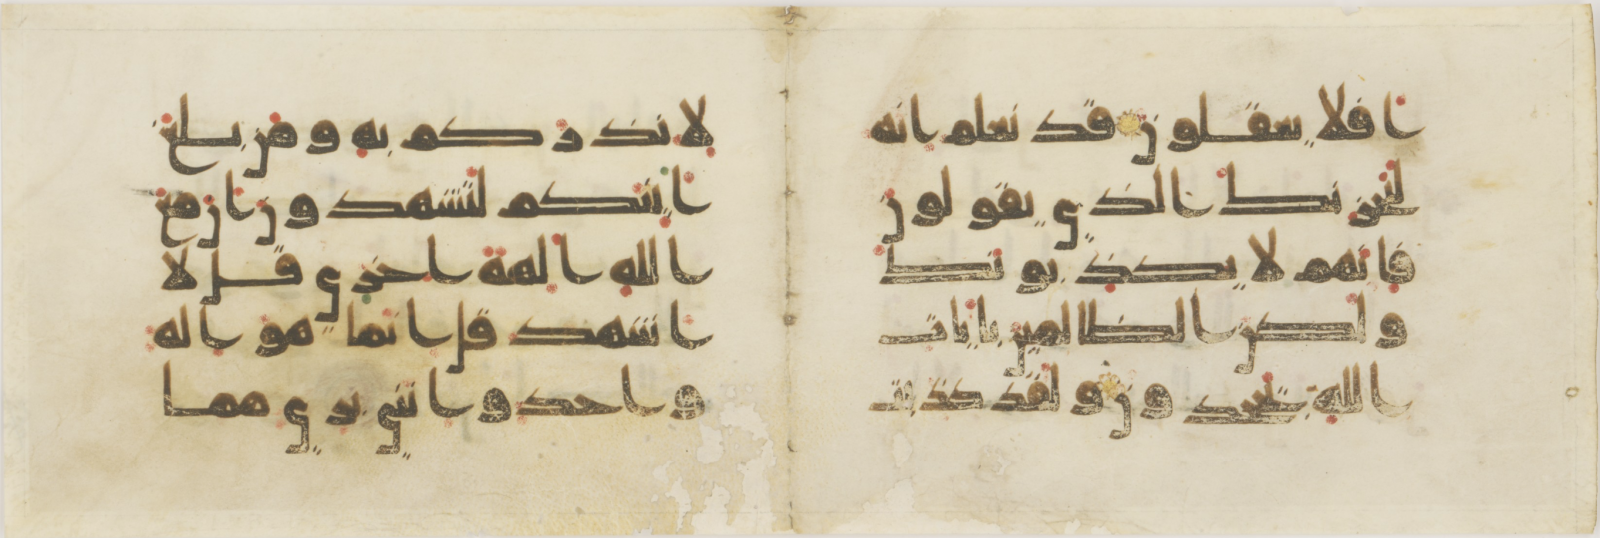 افلا تعقلون قد نعلم انه
ليحزنك الذي يقولون
فانهم لا يكذبونك
ولكن الظالمين بايات
الله يجحدون ولقد كذبت
لانذركم به ومن بلغ
ائنكم لتشهدون ان مع
الله الهة اخرى قل لا
اشهد قل انما هو اله
واحد وانني بري مما